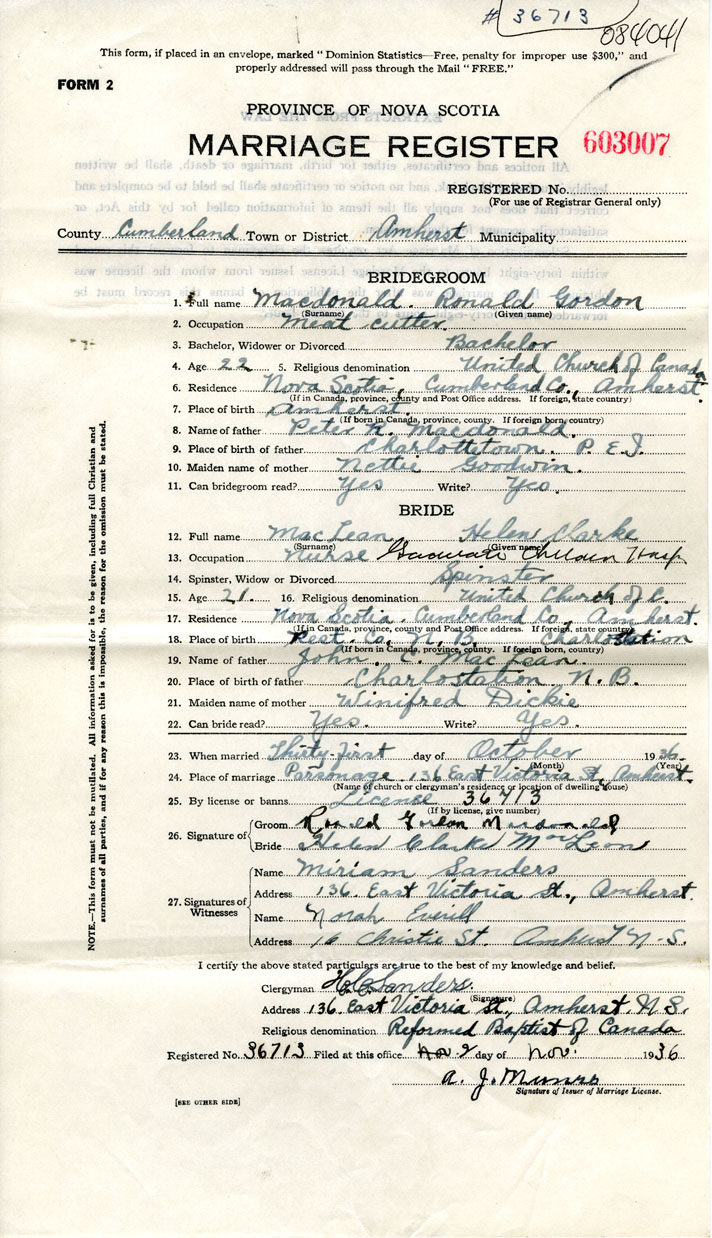 # 36713
084041
This form, if placed in an envelope, marked "Dominion Statistics—Free, penalty for improper use $300," and
properly addressed will pass through the Mail "FREE."
FORM 2
PROVINCE OF NOVA SCOTIA
MARRIAGE REGISTER 603007
REGISTERED No.
(For use of Registrar General only)
County Cumberland Town or District Amherst Municipality
BRIDEGROOM
1. Full name Macdonald. Ronald Gordon
(Surname) (Given name)
2. Occupation Meat cutter.
3. Bachelor, Widower or Divorced Bachelor
4. Age 22 5. Religious denomination United Church of Canada
6. Residence Nova Scotia, Cumberland Co., Amherst.
(If in Canada, province, county and Post Office address. If foreign, state country)
7. Place of birth Amherst.
(If born in Canada, province, county. If foreign born, country)
8. Name of father Peter R. Macdonald.
9. Place of birth of father Charlottetown. P. E. I.
10. Maiden name of mother Nettie Goodwin.
11. Can bridegroom read? Yes Write? Yes.
BRIDE
12. Full name MacLean Helen Clarke
(Surname) (Given name)
13. Occupation Nurse Graduate Children Hosp
14. Spinster, Widow or Divorced Spinster
15. Age 21. 16. Religious denomination United Church of C.
17. Residence Nova Scotia. Cumberland Co., Amherst.
(If in Canada, province, county and Post Office address. If foreign, state country)
18. Place of birth Rest. Co., N. B. Charlostation
(If born in Canada, province, county. If foreign born, country)
19. Name of father John. C. MacLean.
20. Place of birth of father Charlostation N. B.
21. Maiden name of mother Winifred Dickie
22. Can bride read? Yes. Write? Yes.
23. When married Thirty-first day of October 1936.
(Month) (Year)
24. Place of marriage Parsonage. 136 East Victoria St., Amherst.
(Name of church or clergyman's residence or location of dwelling house)
25. By license or banns License 36713
(If by license, give number)
26. Signature of Groom Ronald Gordon Macdonald
Bride Helen Clarke MacLean
27. Signatures of Witnesses Name Miriam Sanders
Address 136. East Victoria St., Amherst.
Name Norah Everill
Address 16 Christie St. Amherst N-S.
I certify the above stated particulars are true to the best of my knowledge and belief.
Clergyman H.C. Sanders.
(Signature)
Address 136. East Victoria St., Amherst. N.S.
Religious denomination Reformed Baptist of Canada
Registered No. 36713 Filed at this office Nov. 2 day of Nov. 1936
A. J. Munro
Signature of Issuer of Marriage License.
[SEE OTHER SIDE]
NOTE.—This form must not be mutilated. All information asked for is to be given, including full Christian and
surnames of all parties, and if for any reason this is impossible, the reason for the omission must be stated.